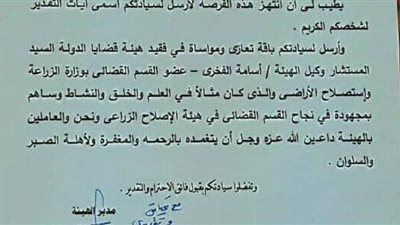 يطيب لى أن أنتهز هذه الفرصة لأرسل لسيادتكم أسمى آيات التقدير
لشخصكم الكريم .
وأرسل لسيادتكم باقة تعازى ومواساة فى فقيد هيئة قضايا الدولة السيد
المستشار وكيل الهيئة / أسامة الفخرى – عضو القسم القضائى بوزارة الزراعة
وإستصلاح الأراضى والذى كان مثالاً فى العلم والخلق والنشاط وساهم
بمجهودة فى نجاح القسم القضائى فى هيئة الإصلاح الزراعى ونحن والعاملين
بالهيئة داعين الله عزه وجل أن يتغمده بالرحمه والمغفرة ولأهلة الصبر
والسلوان .
وتفضلوا سيادتكم بقبول فائق الاحترام والتقدير .
مدير الهيئة